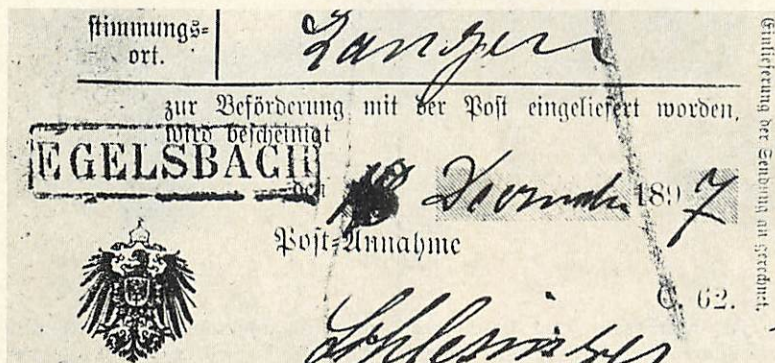 stimmungs=
ort.
Langen
zur Beförderung mit der Post eingeliefert worden,
wird bescheinigt
EGELSBACH
den 1897
Post=Annahme
C. 62.
Einlieferung der Sendung an gerechnet.